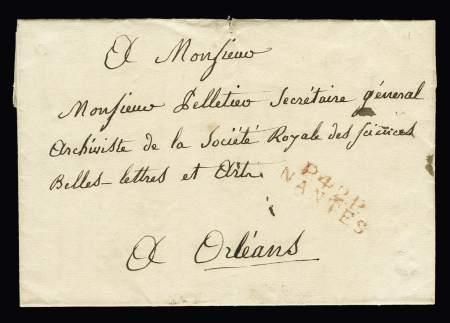 A Monsieur
Monsieur Pelletier Secrétaire général
Archiviste de la Société Royale des sciences
Belles-lettres et Arts
P.42.P
NANTES
A Orléans